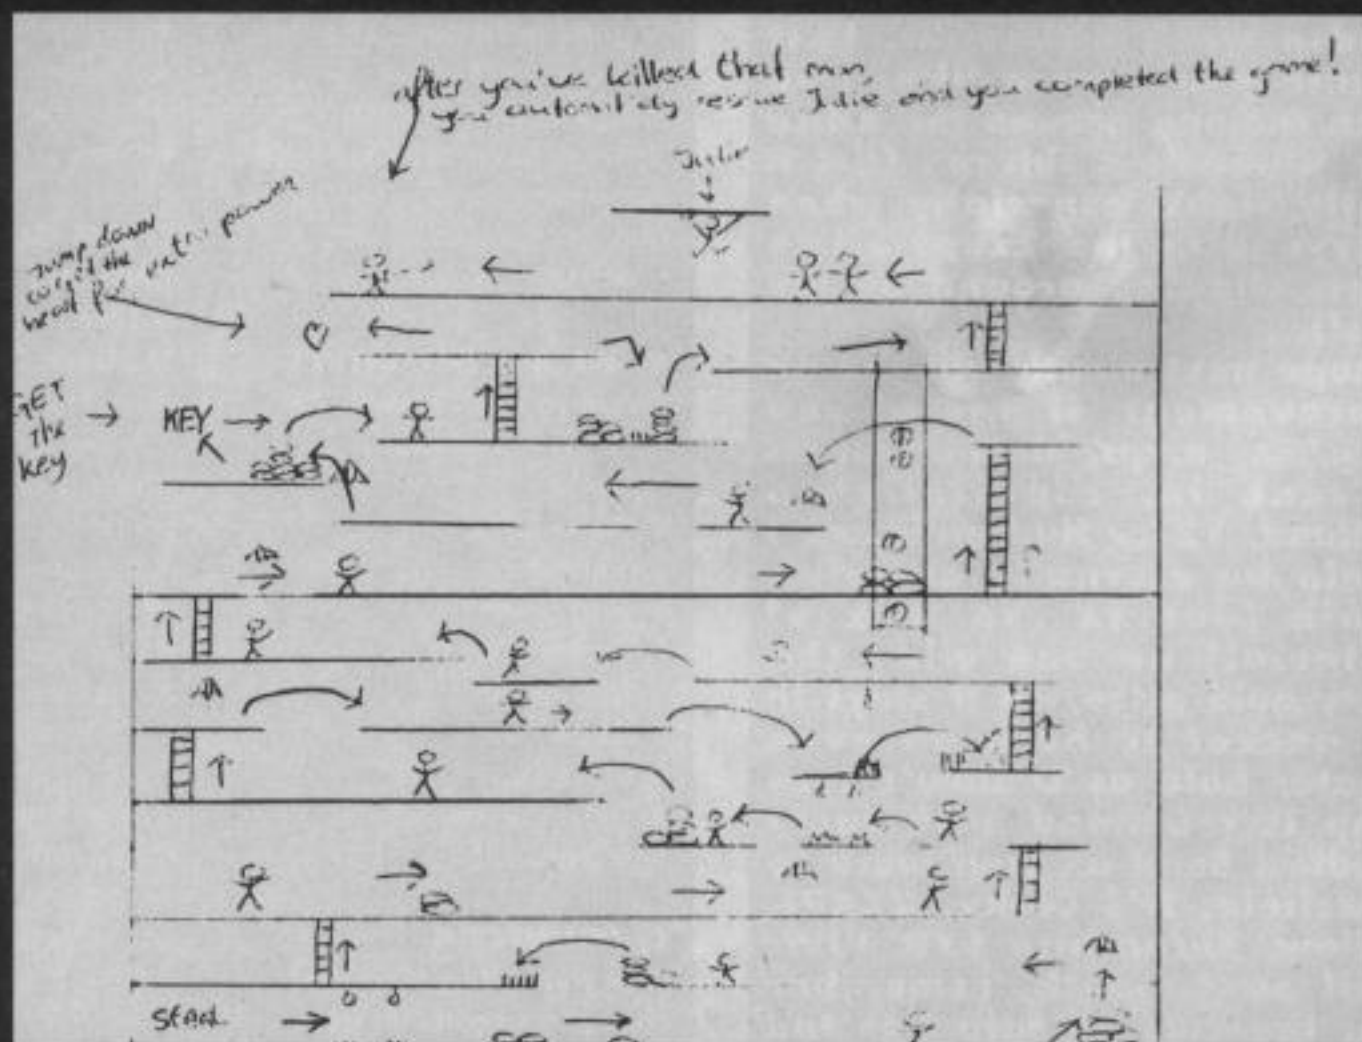 After you've killed that man,
you automaticly rescue Julie and you completed the game!
Julie
Jump down
the
power
KEY
GET
the
key
Start